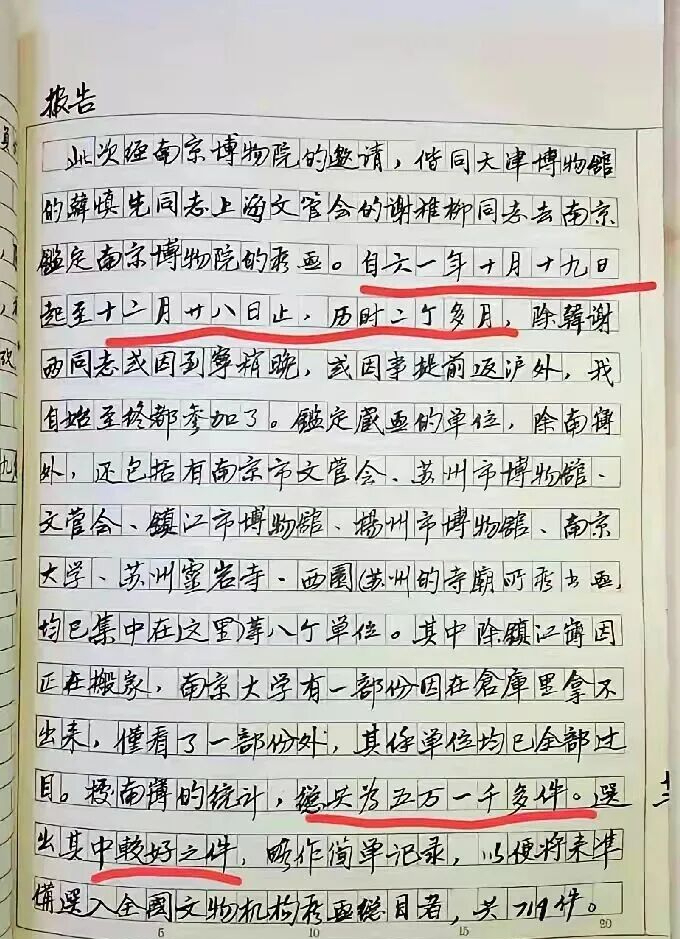 报告
此次经南京博物院的邀请，偕同天津博物館
的韓慎先同志上海文管会的谢稚柳同志去南京
鑑定南京博物院的藏画。自六一年十月十九日
起至十二月廿八日止，历时二个多月，除韓谢
两同志或因到寧稍晚，或因事提前返沪外，我
自始至终都参加了。鑑定藏画的单位，除南博
外，还包括有南京市文管会、苏州市博物館、
文管会、鎮江市博物館、揚州市博物館、南京
大学、苏州靈岩寺、西園(苏州的寺廟所藏书画，
均已集中在这里)等八个单位。其中除鎮江博因
正在搬家，南京大学有一部份因在倉庫里拿不
出来，僅看了一部份外，其余单位均已全部过
目。据南博的统计，總共为五万一千多件。选
出其中較好之件，略作简单记录，以便将来准
備选入全國文物机构藏画總目者，共719件。
5 10 15 20
九
十二